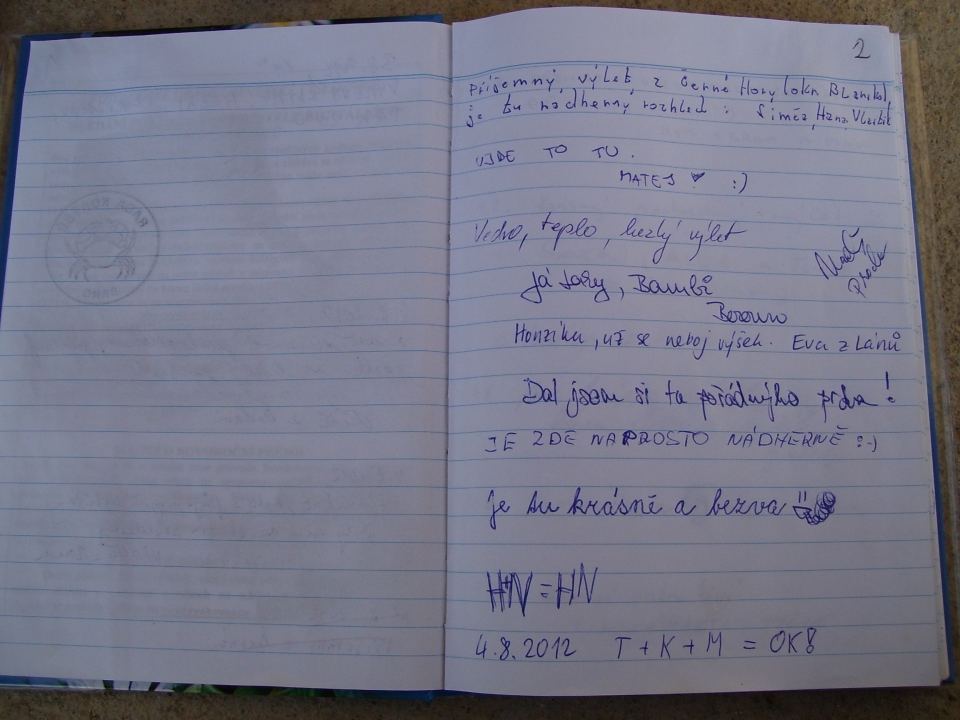 2
Příjemný výlet z Černé Hory (okr. Blansko),
je tu nádherný rozhled! Hana
UJDE TO TU.
MATEJ :)
Vedro, teplo, hezký výlet
Já Bambi
Beroun
Honziku, už se neboj výšek. Eva z Lánů
Dal jsem si tu pořádnýho prda!
JE ZDE NAPROSTO NÁDHERNĚ :-)
je tu krásně a bezva
H+N = HN
4.8.2012 T + K + M = OK8